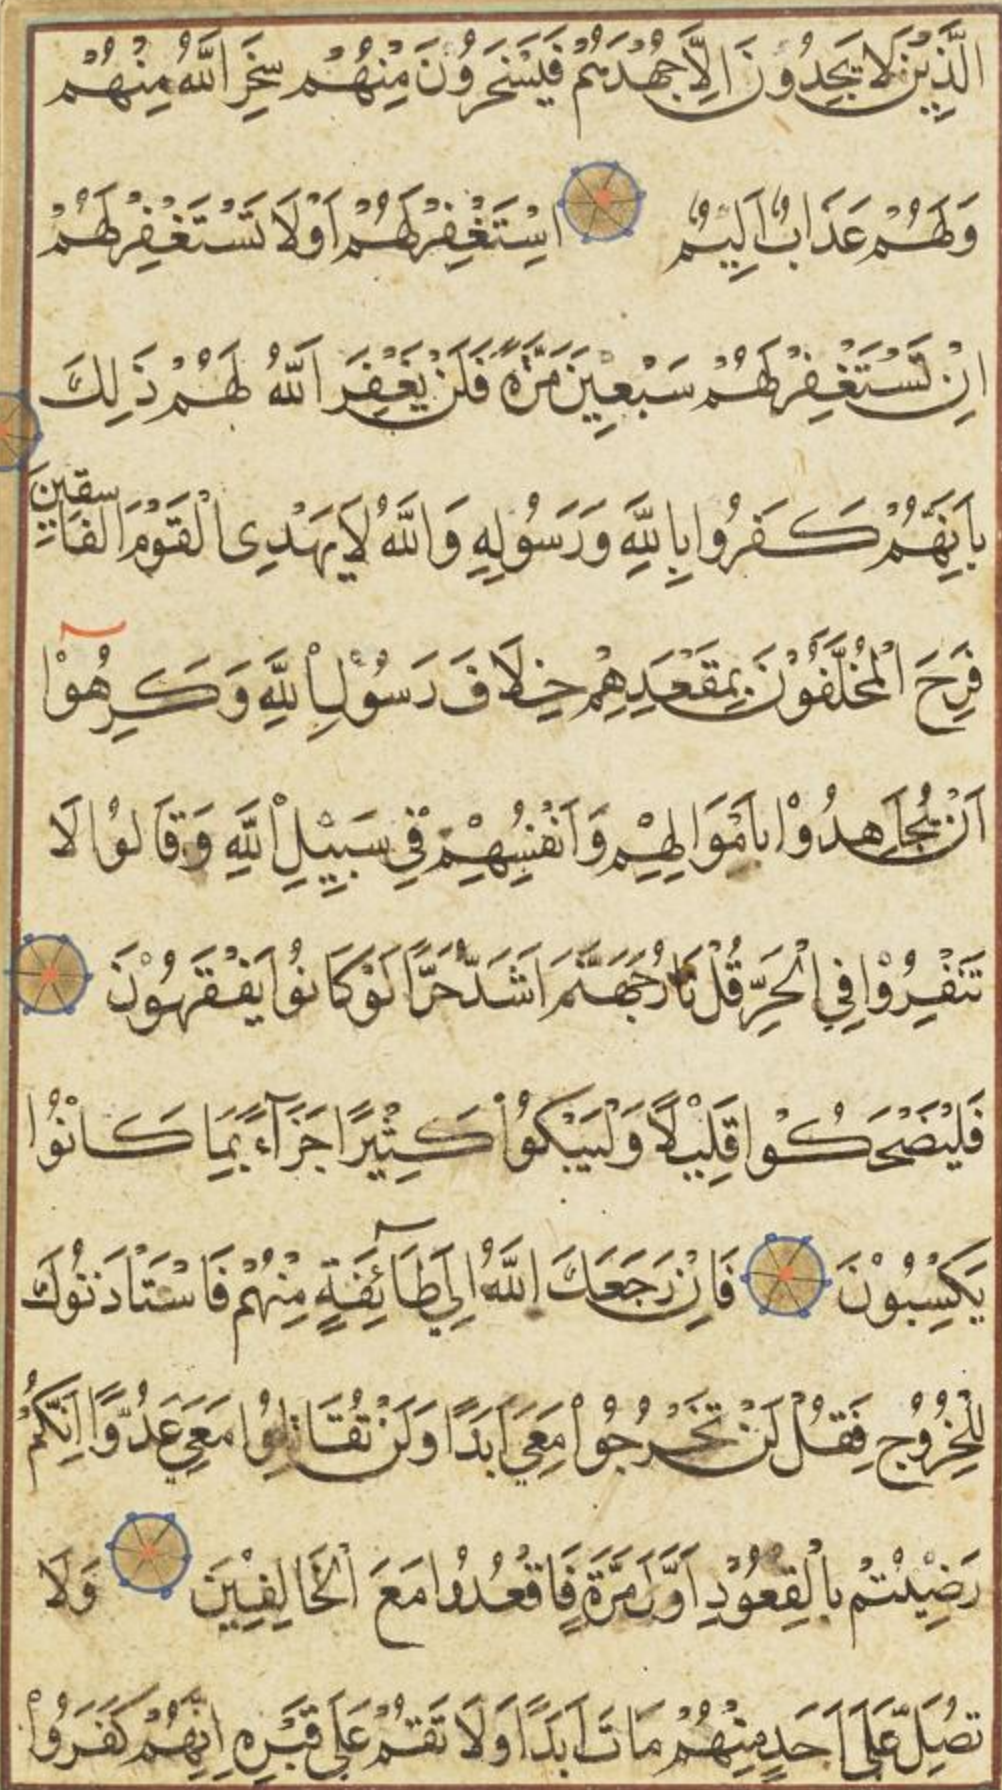 الَّذِيْنَ لَا يَجِدُوْنَ اِلَّا جُهْدَهُمْ فَيَسْخَرُوْنَ مِنْهُمْ سَخِرَ اللّٰهُ مِنْهُمْ
وَلَهُمْ عَذَابٌ اَلِيْمٌ اِسْتَغْفِرْ لَهُمْ اَوْ لَا تَسْتَغْفِرْ لَهُمْ
اِنْ تَسْتَغْفِرْ لَهُمْ سَبْعِيْنَ مَرَّةً فَلَنْ يَغْفِرَ اللّٰهُ لَهُمْ ذَلِكَ
بِاَنَّهُمْ كَفَرُوا بِاللّٰهِ وَرَسُوْلِهِ وَاللّٰهُ لَا يَهْدِى الْقَوْمَ الْفَاسِقِيْنَ
فَرِحَ الْمُخَلَّفُوْنَ بِمَقْعَدِهِمْ خِلَافَ رَسُوْلِ اللّٰهِ وَكَرِهُوْآ
اَنْ يُجَاهِدُوْا بِاَمْوَالِهِمْ وَاَنْفُسِهِمْ فِيْ سَبِيْلِ اللّٰهِ وَقَالُوْا لَا
تَنْفِرُوْا فِي الْحَرِّ قُلْ نَارُ جَهَنَّمَ اَشَدُّ حَرًّا لَوْ كَانُوْا يَفْقَهُوْنَ
فَلْيَضْحَكُوْا قَلِيْلًا وَلْيَبْكُوْا كَثِيْرًا جَزَآءً بِمَا كَانُوْا
يَكْسِبُوْنَ فَاِنْ رَجَعَكَ اللّٰهُ اِلٰي طَآئِفَةٍ مِنْهُمْ فَاسْتَاْذَنُوْكَ
لِلْخُرُوْجِ فَقُلْ لَنْ تَخْرُجُوْا مَعِيَ اَبَدًا وَلَنْ تُقَاتِلُوْا مَعِيَ عَدُوًّا اِنَّكُمْ
رَضِيْتُمْ بِالْقُعُوْدِ اَوَّلَ مَرَّةٍ فَاقْعُدُوْا مَعَ الْخَالِفِيْنَ وَلَا
تُصَلِّ عَلَى اَحَدٍ مِنْهُمْ مَاتَ اَبَدًا وَلَا تَقُمْ عَلَى قَبْرِهِ اِنَّهُمْ كَفَرُوْا